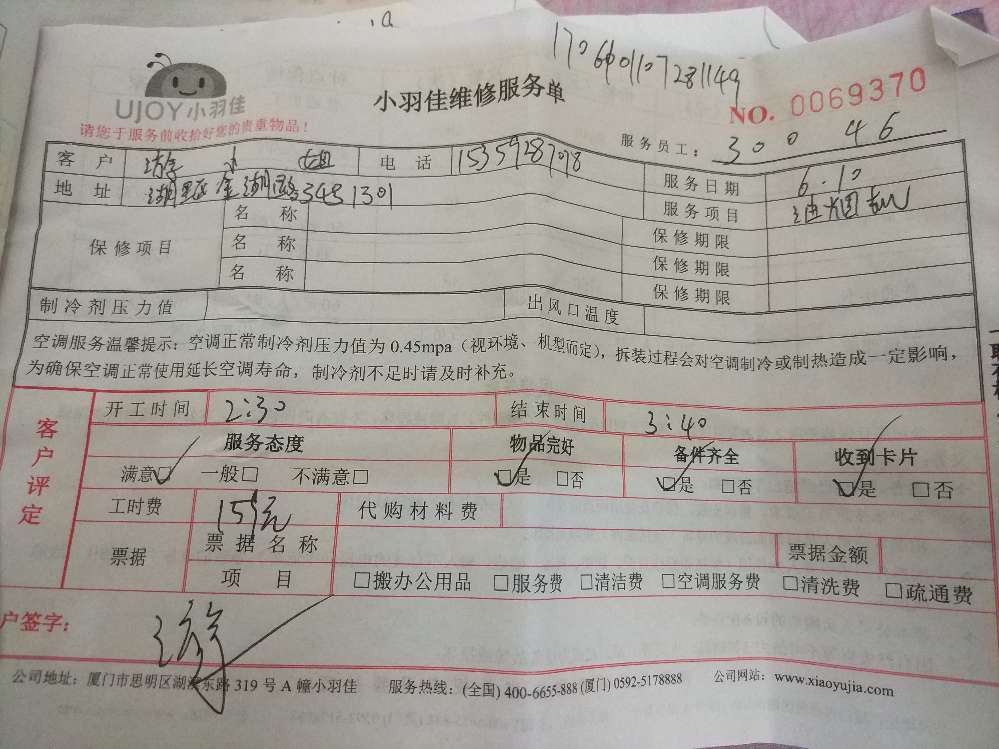 170601107281149
UJOY小羽佳
小羽佳维修服务单
NO. 0069370
请您于服务前收拾好您的贵重物品！
服务员工： 300 46
客 户 游 小 姐 电 话 15359287098 服务日期 6.10
地 址 湖里区金湖路3451301 服务项目 油烟机
保修项目 名 称 保修期限
名 称 保修期限
名 称 保修期限
制冷剂压力值 出风口温度
空调服务温馨提示：空调正常制冷剂压力值为 0.45mpa（视环境、机型而定），拆装过程会对空调制冷或制热造成一定影响，
为确保空调正常使用延长空调寿命，制冷剂不足时请及时补充。
客户评定
开工时间 2:30 结束时间 3:40
服务态度 物品完好 备件齐全 收到卡片
满意□ 一般□ 不满意□ □是 □否 □是 □否 □是 □否
工时费 159元 代购材料费
票据 票据名称 票据金额
项 目 □搬办公用品 □服务费 □清洁费 □空调服务费 □清洗费 □疏通费
户签字： 游
公司地址：厦门市思明区湖滨东路 319 号 A 幢小羽佳 服务热线：(全国) 400-6655-888 (厦门) 0592-5178888 公司网站：www.xiaoyujia.com